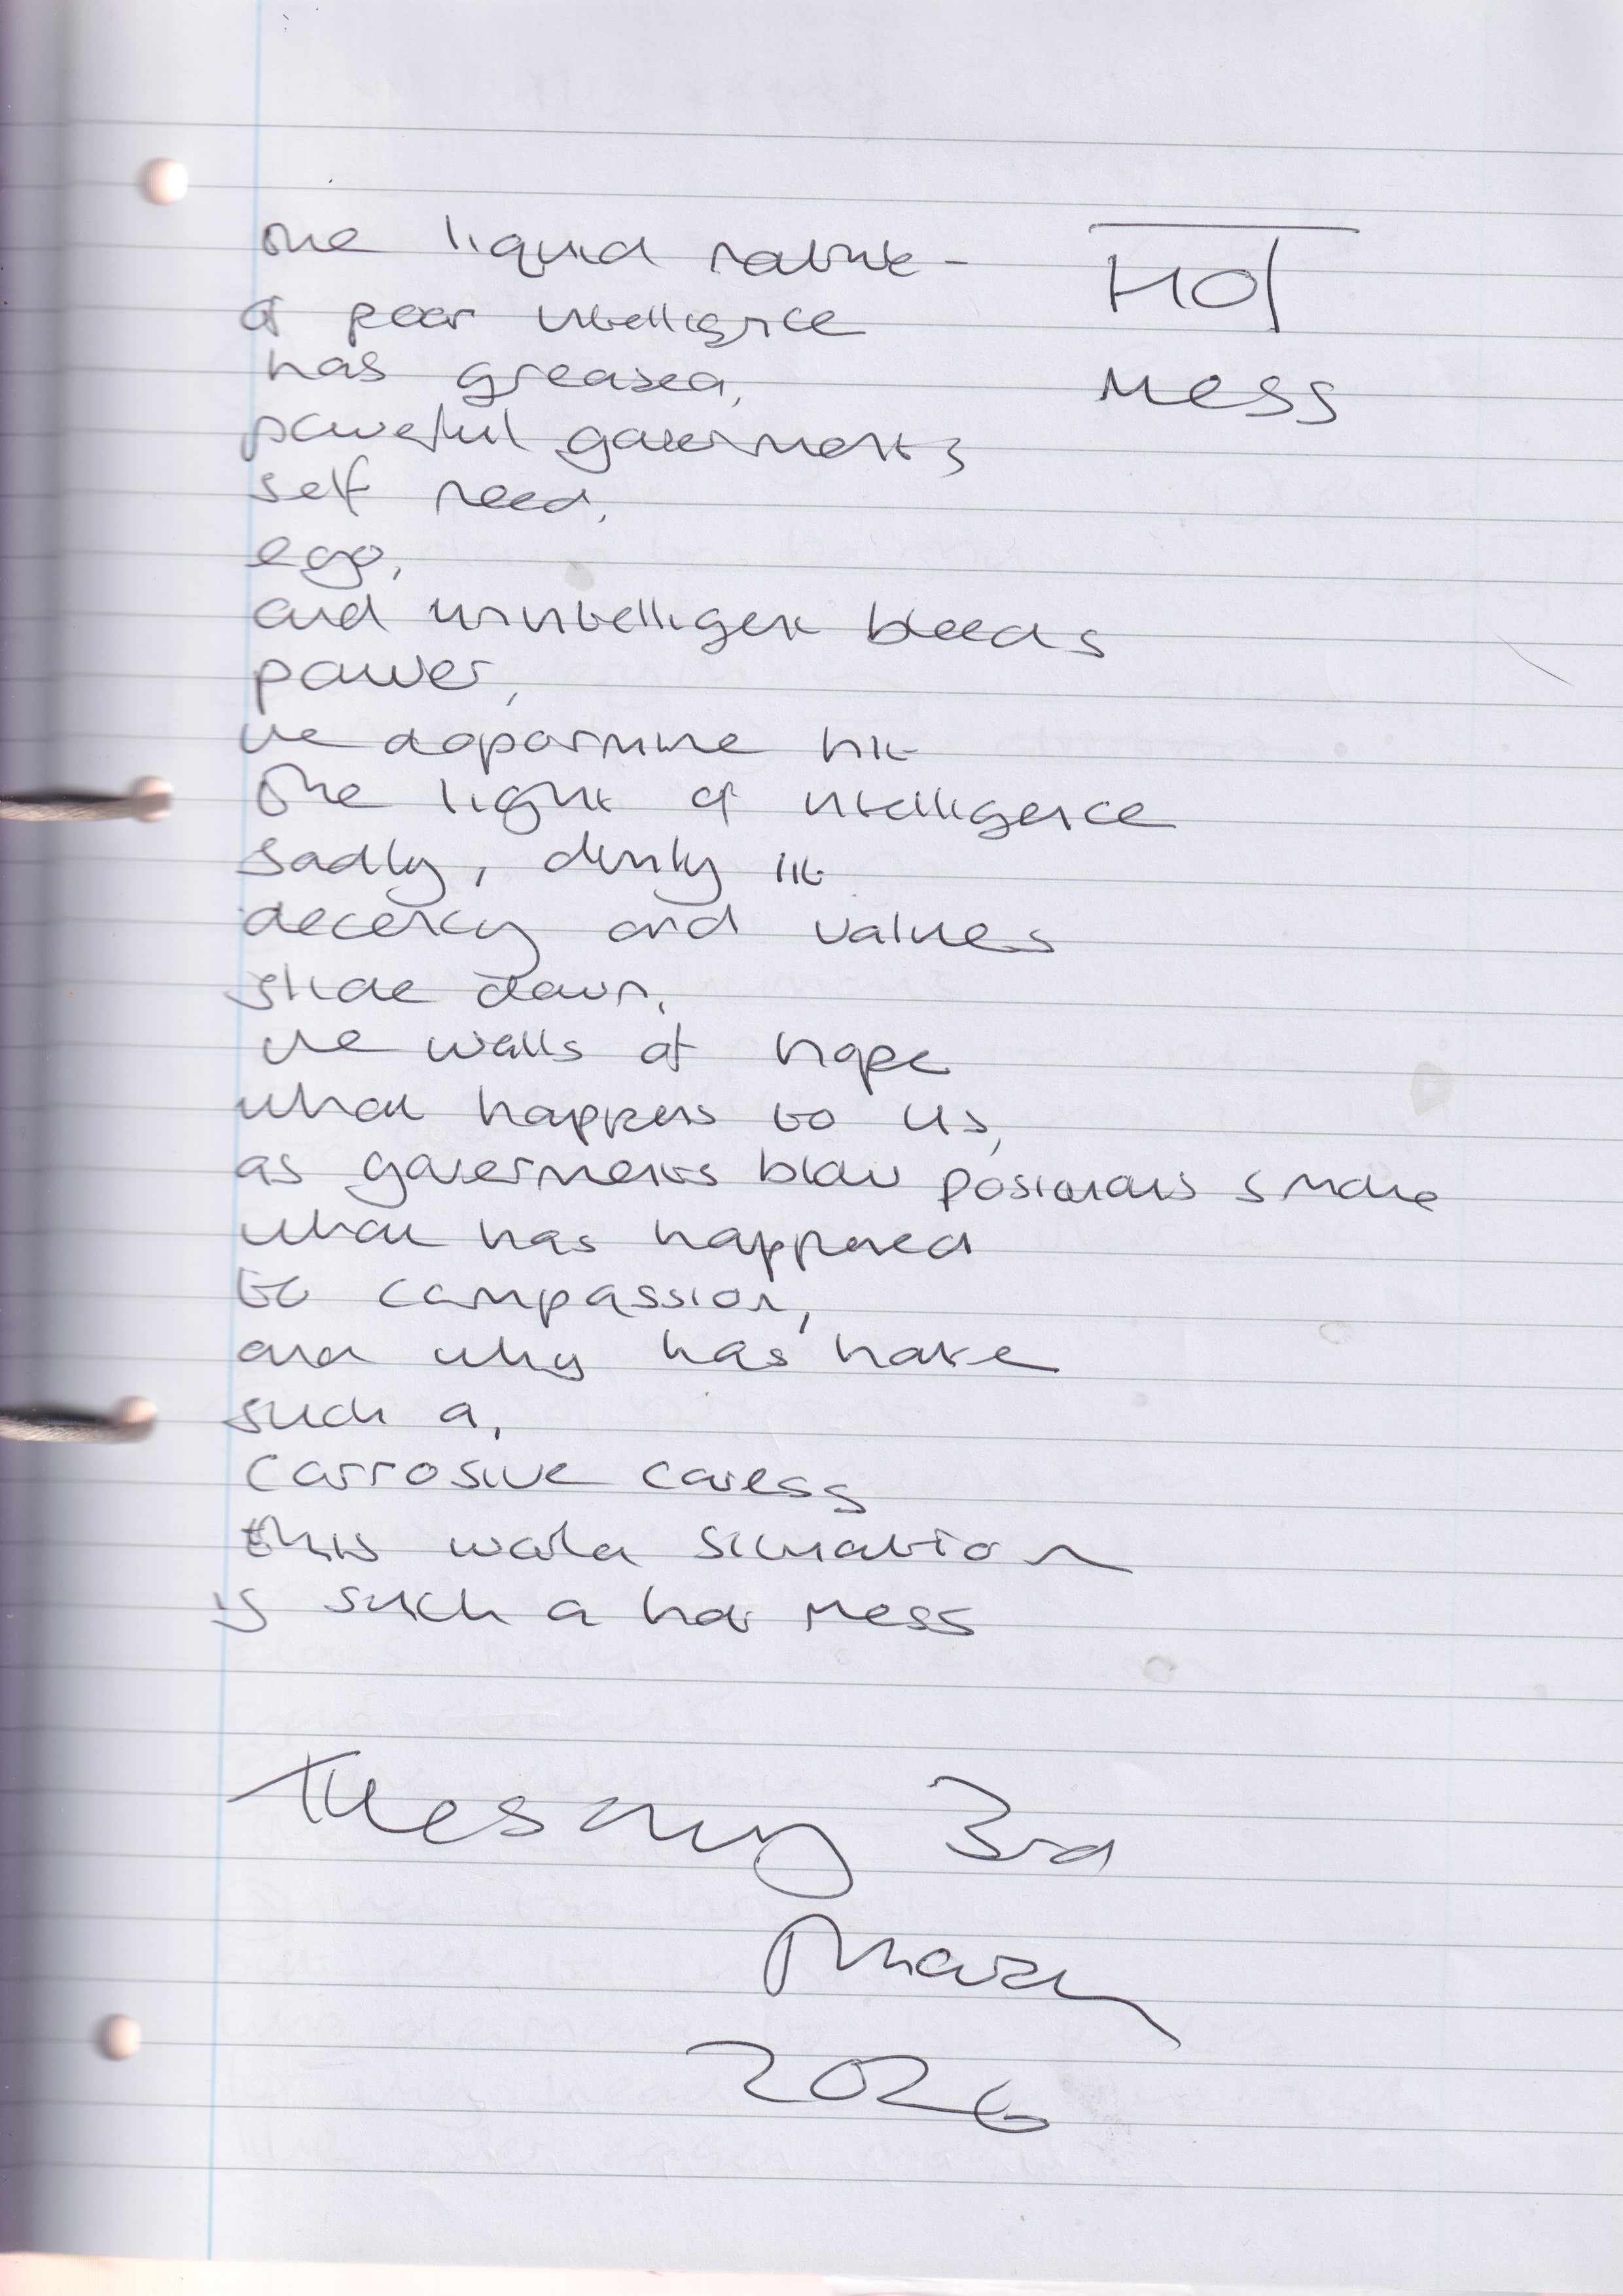 HOT
MESS
The liquid nature -
of poor intelligence
has greased,
powerful governments
self need,
ego,
and unintelligent bleeds
power,
the dopamine hit
The light of intelligence
sadly, dimly lit
decency and values
slide down,
the walls of hope
what happens to us,
as governments blow poisonous smoke
what has happened
to compassion,
and why has hate
such a,
corrosive caress
this world situation
is such a hot mess
Tuesday 3rd
March
2026